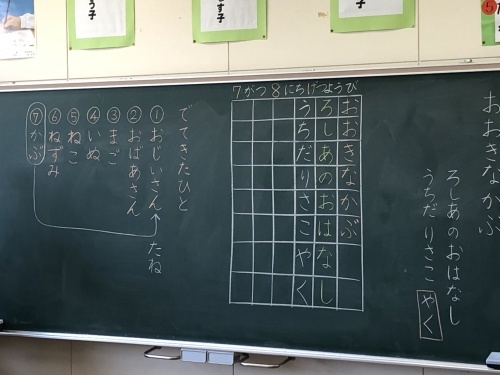 おおきなかぶ
ろしあのおはなし
うちだりさこ やく
7がつ8にちげつようび
おおきなかぶ
ろしあのおはなし
うちだりさこやく
でてきたひと
①おじいさん
②おばあさん
③まご
④いぬ
⑤ねこ
⑥ねずみ
⑦かぶ
たね